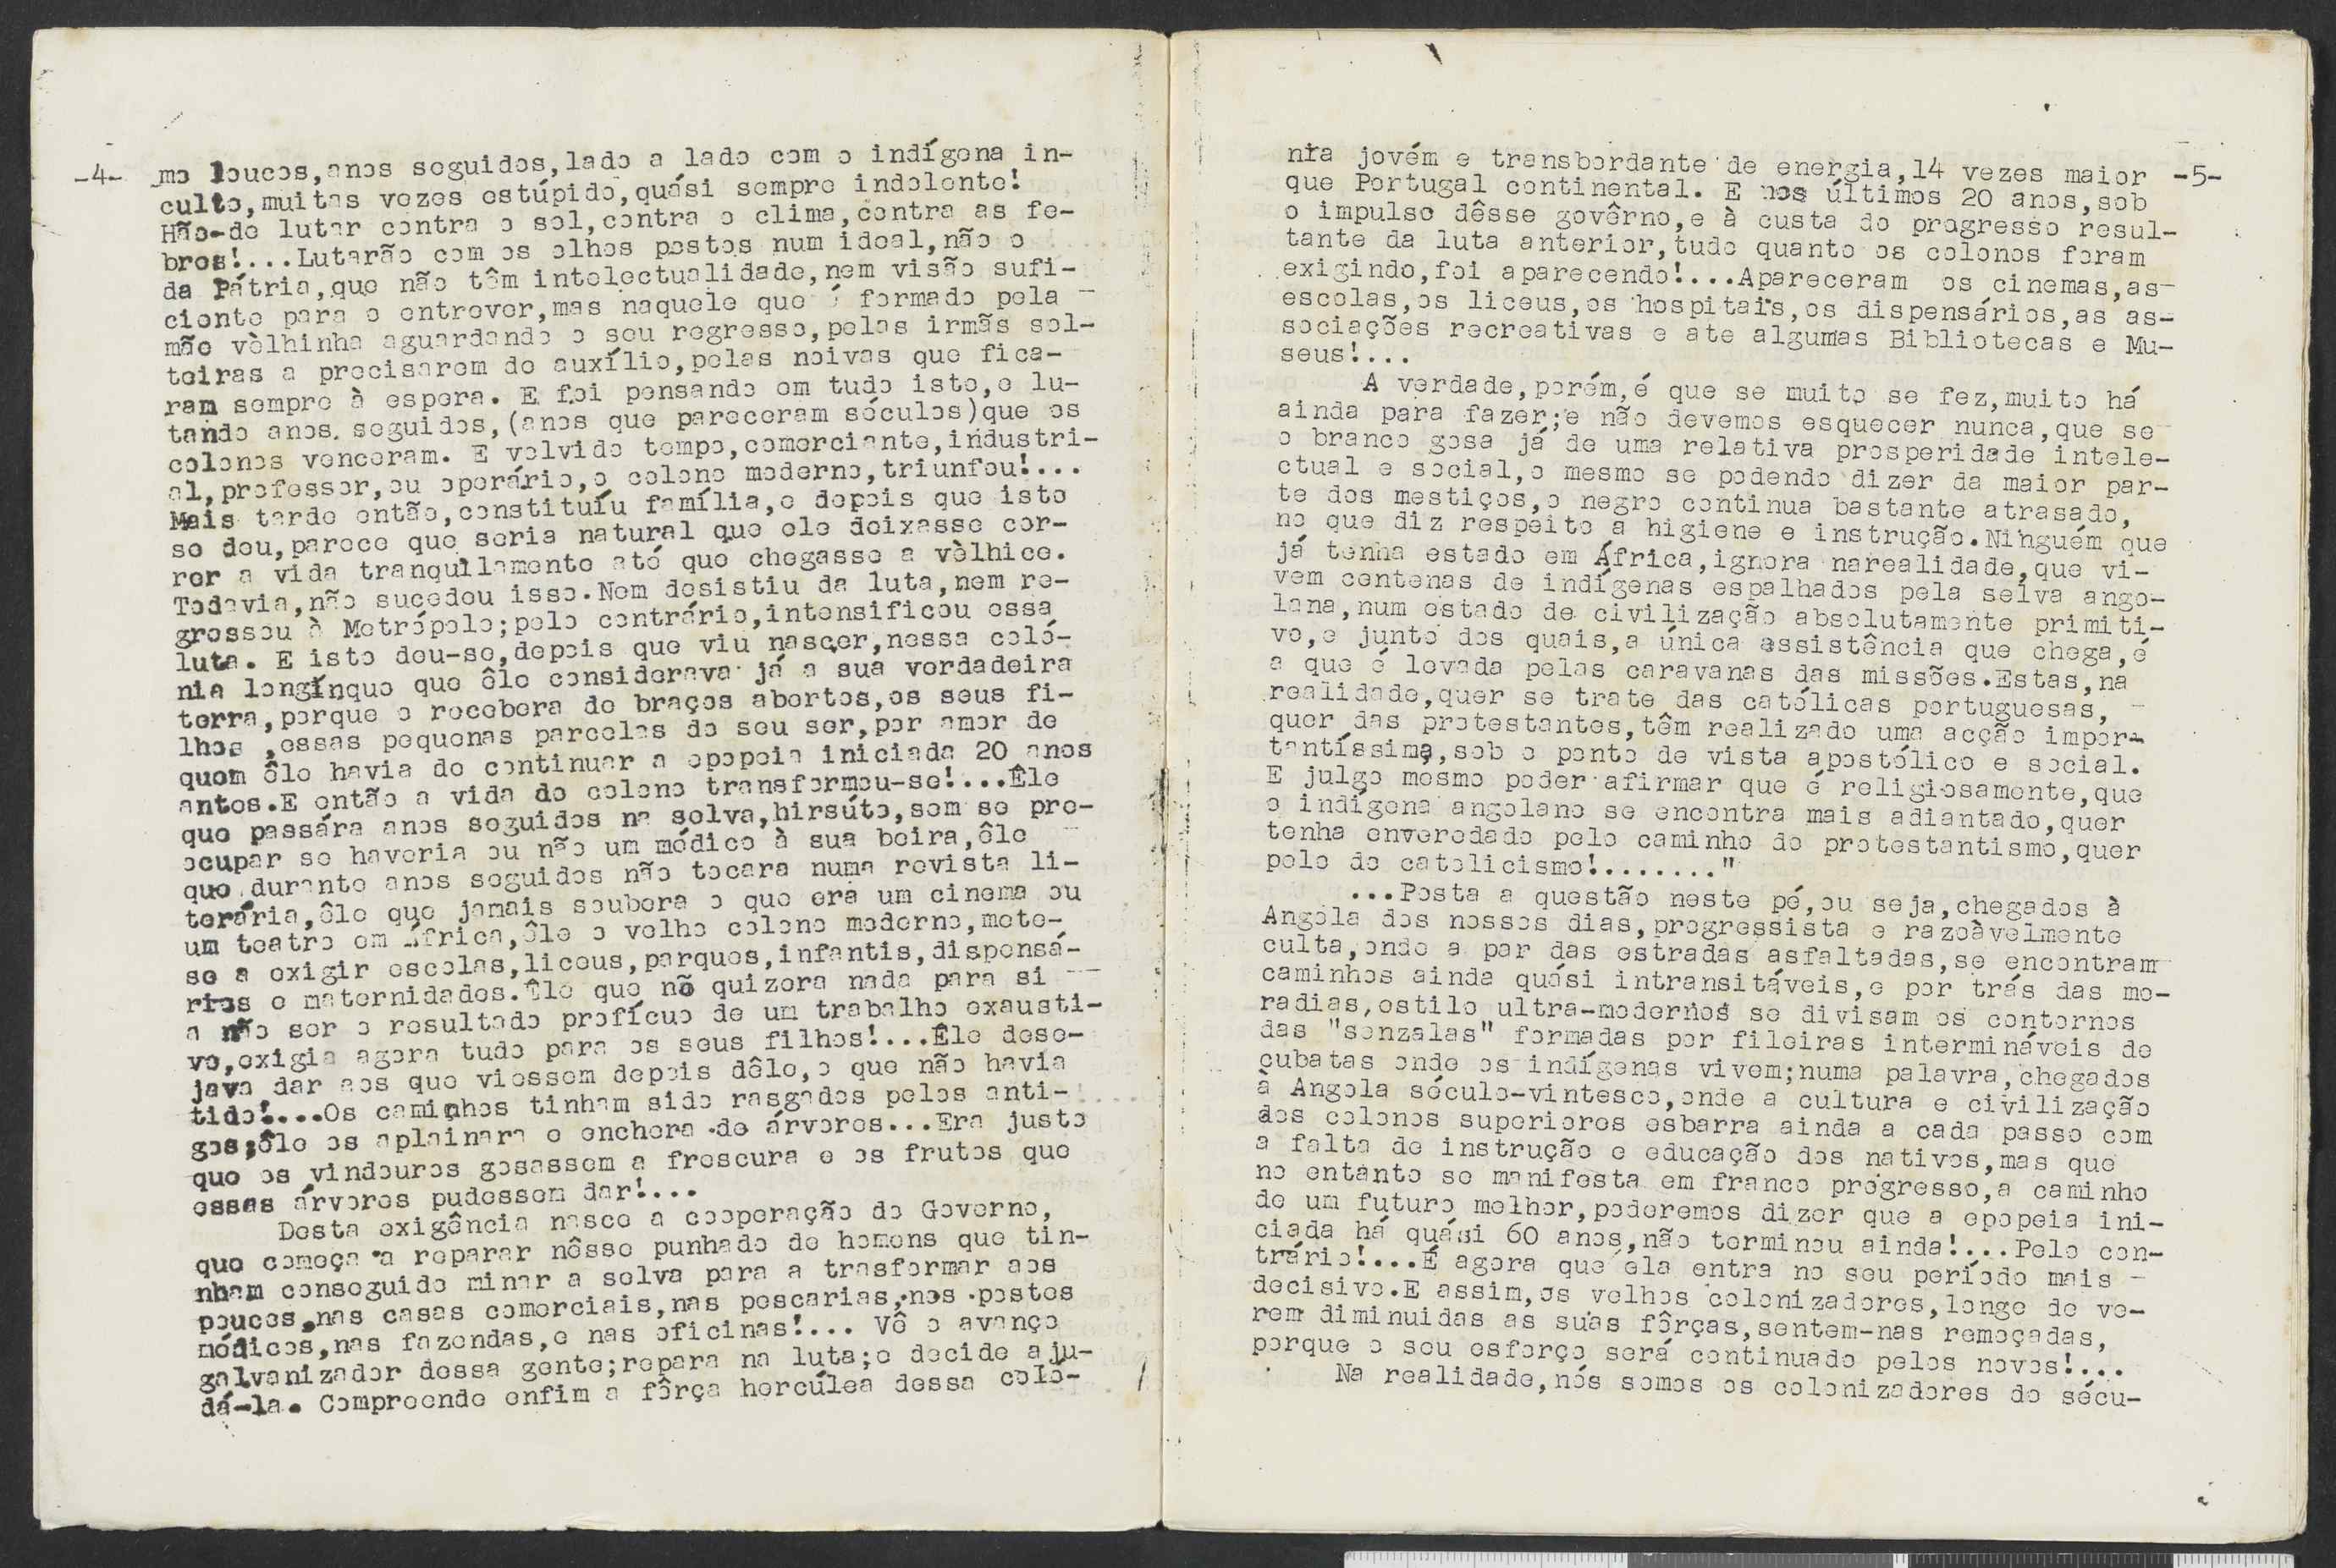 -4-
mo loucos,anos seguidos,lado a lado com o indígena in-
culto,muitas vezes estúpido,quási sempre indolente!
Hão-de lutar contra o sol,contra o clima,contra as fe-
bres!...Lutarão com os olhos postos num ideal,não o
da Pátria,que não têm intelectualidade,nem visão sufi-
ciente para o entrever,mas naquele que é formado pela
mãe vèlhinha aguardando o seu regresso,pelas irmãs sol-
teiras a precisarem de auxílio,pelas noivas que fica-
ram sempre à espera. E foi pensando em tudo isto,e lu-
tando anos seguidos,(anos que pareceram séculos)que os
colonos venceram. E volvido tempo,comerciante,industri-
al,professor,ou operário,o colono moderno,triunfou!...
Mais tarde então,constituíu família,e depois que isto
se deu,parece que seria natural que ele deixasse cor-
rer a vida tranquìlamente até que chegasse a vèlhice.
Todavia,não sucedeu isso.Nem desistiu da luta,nem re-
gressou à Metrópole;pelo contrário,intensificou essa
luta. E isto deu-se,depois que viu nascer,nessa coló-
nia longínqua que êle considerava já a sua verdadeira
terra,porque o recebera de braços abertos,os seus fi-
lhos ,essas pequenas parcelas do seu ser,por amor de
quem êle havia de continuar a epopeia iniciada 20 anos
antes.E então a vida do colono transformou-se!...Êle
que passára anos seguidos na selva,hirsúto,sem se pre-
ocupar se haveria ou não um médico à sua beira,êle
que,durante anos seguidos não tocara numa revista li-
terária,êle que jamais soubera o que era um cinema ou
um teatro em África,êle o velho colono moderno,mete-
se a exigir escolas,liceus,parques,infantis,dispensá-
rios e maternidades.Êle que nõ quizera nada para si
a não ser o resultado profícuo de um trabalho exausti-
vo,exigia agora tudo para os seus filhos!...Êle dese-
java dar aos que viessem depois dêle,o que não havia
tido!...Os caminhos tinham sido rasgados pelos anti-
gos;êle os aplainara e enchera de árvores...Era justo
que os vindouros gosassem a frescura e os frutos que
essas árvores pudessem dar!...
Desta exigência nasce a cooperação do Governo,
que começa a reparar nêsse punhado de homens que tin-
nham conseguido minar a selva para a trasformar aos
poucos,nas casas comerciais,nas pescarias,nos postos
médicos,nas fazendas,e nas oficinas!... Vê o avanço
galvanizador dessa gente;repara na luta;e decide aju-
dá-la. Compreende enfim a fôrça hercúlea dessa coló-
-5-
nia jovém e transbordante de energia,14 vezes maior
que Portugal continental. E nos últimos 20 anos,sob
o impulso dêsse govêrno,e à custa do progresso resul-
tante da luta anterior,tudo quanto os colonos foram
exigindo,foi aparecendo!...Apareceram os cinemas,as
escolas,os liceus,os hospitais,os dispensários,as as-
sociações recreativas e ate algumas Bibliotecas e Mu-
seus!...
A verdade,porém,é que se muito se fez,muito há
ainda para fazer;e não devemos esquecer nunca,que se
o branco gosa já de uma relativa prosperidade intele-
ctual e social,o mesmo se podendo dizer da maior par-
te dos mestiços,o negro continua bastante atrasado,
no que diz respeito a higiene e instrução.Ninguém que
já tenha estado em África,ignora narealidade,que vi-
vem centenas de indígenas espalhados pela selva ango-
lana,num estado de civilização absolutamente primiti-
vo,e junto dos quais,a única assistência que chega,é
a que é levada pelas caravanas das missões.Estas,na
realidade,quer se trate das católicas portuguesas,
quer das protestantes,têm realizado uma acção impor-
tantíssima,sob o ponto de vista apostólico e social.
E julgo mesmo poder afirmar que é religiosamente,que
o indígena angolano se encontra mais adiantado,quer
tenha enveredado pelo caminho do protestantismo,quer
pelo do catolicismo!........"
...Posta a questão neste pé,ou seja,chegados à
Angola dos nossos dias,progressista e razoàvelmente
culta,onde a par das estradas asfaltadas,se encontram
caminhos ainda quási intransitáveis,e por trás das mo-
radias,estilo ultra-modernos se divisam os contornos
das "senzalas" formadas por fileiras intermináveis de
cubatas onde os indígenas vivem;numa palavra,chegados
à Angola século-vintesco,onde a cultura e civilização
dos colonos superiores esbarra ainda a cada passo com
a falta de instrução e educação dos nativos,mas que
no entanto se manifesta em franco progresso,a caminho
de um futuro melhor,poderemos dizer que a epopeia ini-
ciada há quási 60 anos,não terminou ainda!...Pelo con-
trário!...É agora que ela entra no seu período mais
decisivo.E assim,os velhos colonizadores,longe de ve-
rem diminuidas as suas fôrças,sentem-nas remoçadas,
porque o seu esforço será continuado pelos novos!...
Na realidade,nós somos os colonizadores do sécu-